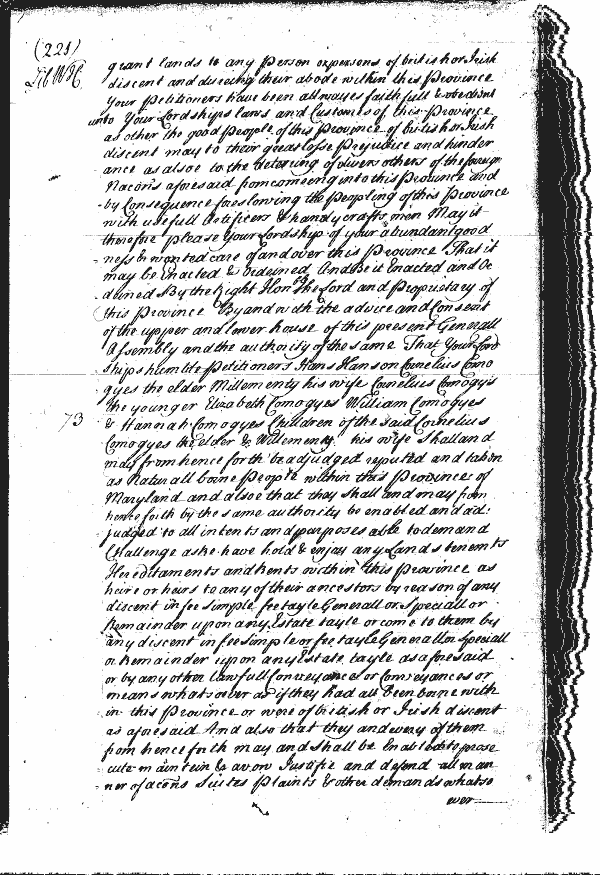 (221)
Lib WH
grant lands to any Person or persons of british or Irish
discent and dureing their abode within this Province
Your Petitioners have been allwayes faithfull & obedient
unto Your Lordships laws and Customes of this Province
as other the good People of this Province of british or Irish
discent may to their great losse Prejudice and hinder
ance as alsoe to the detering of divers others of the foreign
Nacons aforesaid from comeing into this Province and
by Consequence foreslowing the Peopling of this Province
with usefull Artificers & handycrafts men May it
therefore please Your Lordship of your abundant good
ness & wonted care of and over this Province That it
may be Enacted & ordeined And Be it Enacted and Or
deined By the Right Honble the Lord and Proprietary of
this Province By and with the advice and Consent
of the upper and lower house of this present Generall
Assembly and the authority of the same That Your Lord
ships humble Petitioners Hans Hanson Cornelius Como
gyes the elder Millementy his wife Cornelius Comogys
the younger Elizabeth Comogyes William Comogyes
73
& Hannah Comogyes Children of the said Cornelius
Comogyes the elder & Willementy his wife shall and
may from hence forth be adjudged reputed and taken
as naturall borne People within this Province of
Maryland and alsoe that they shall and may from
hence forth by the same authority be enabled and ad:
judged to all intents and purposes able to demand
Challenge aske have hold & enjoy any Lands tenemts
Hereditaments and Rents within this Province as
heire or heirs to any of their ancestors by reason of any
discent in fee simple fee tayle Generall or Speciall or
Remainder upon any Estate tayle or come to them by
any discent in fee simple or fee tayle Generall or Speciall
or Remainder upon any Estate tayle as aforesaid
or by any other Lawfull Conveyance or Conveyances or
means whatsoever as if they had all been borne with
in this Province or were of british or Irish discent
as aforesaid And also that they and every of them
from hence forth may and shall be Enabled to prose
cute maintein & avow Justifie and defend all man
ner of acons Suites Plaints & other demands whatso
ever